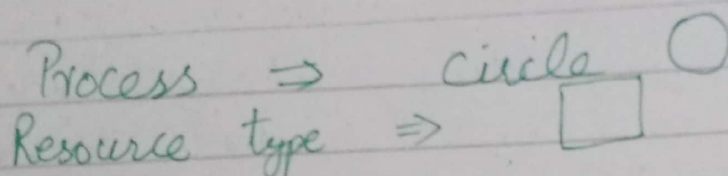 Process ⇒ circle ○
Resource type ⇒ □